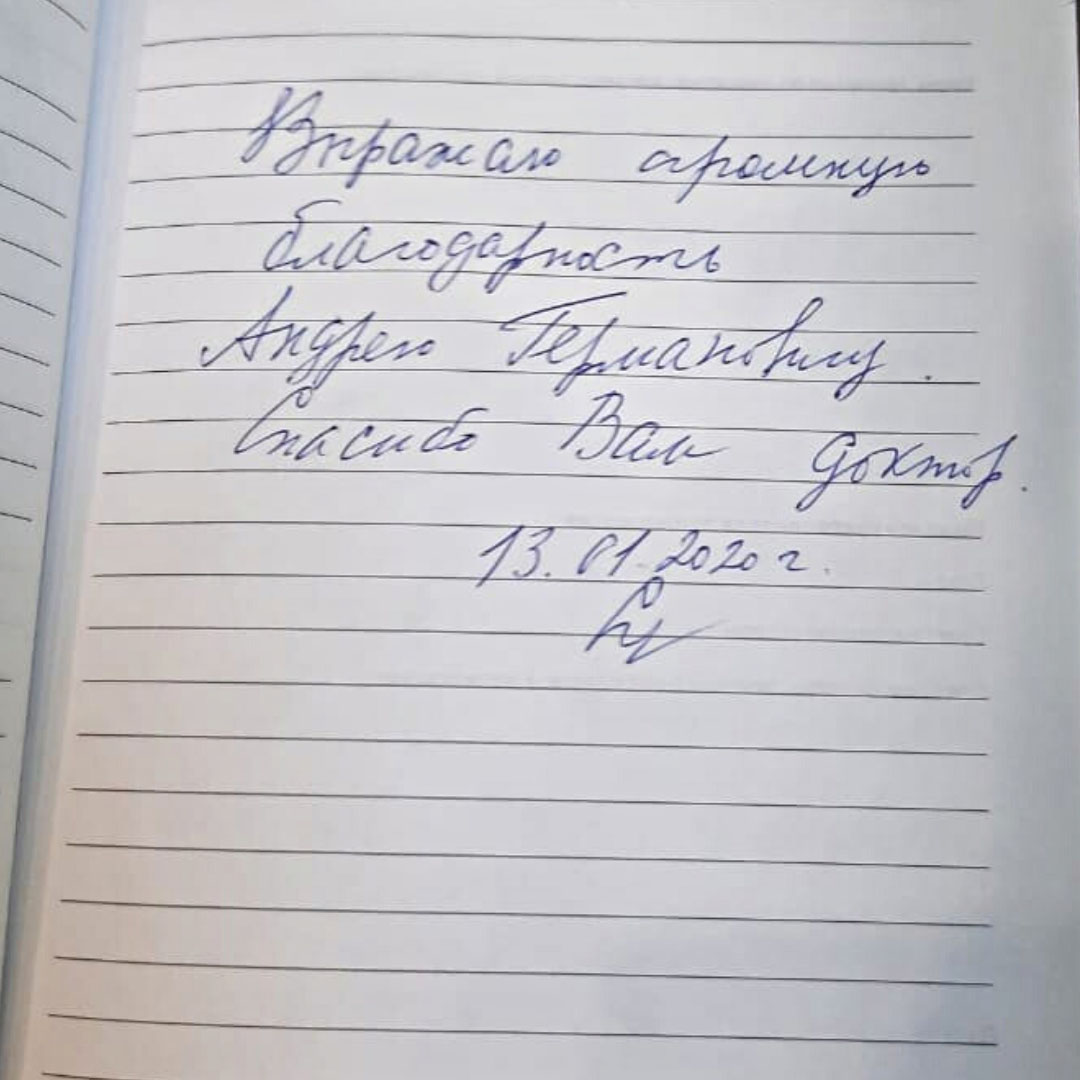 Выражаю огромную
благодарность
Андрею Германовичу.
Спасибо Вам доктор.
13.01.2020 г.